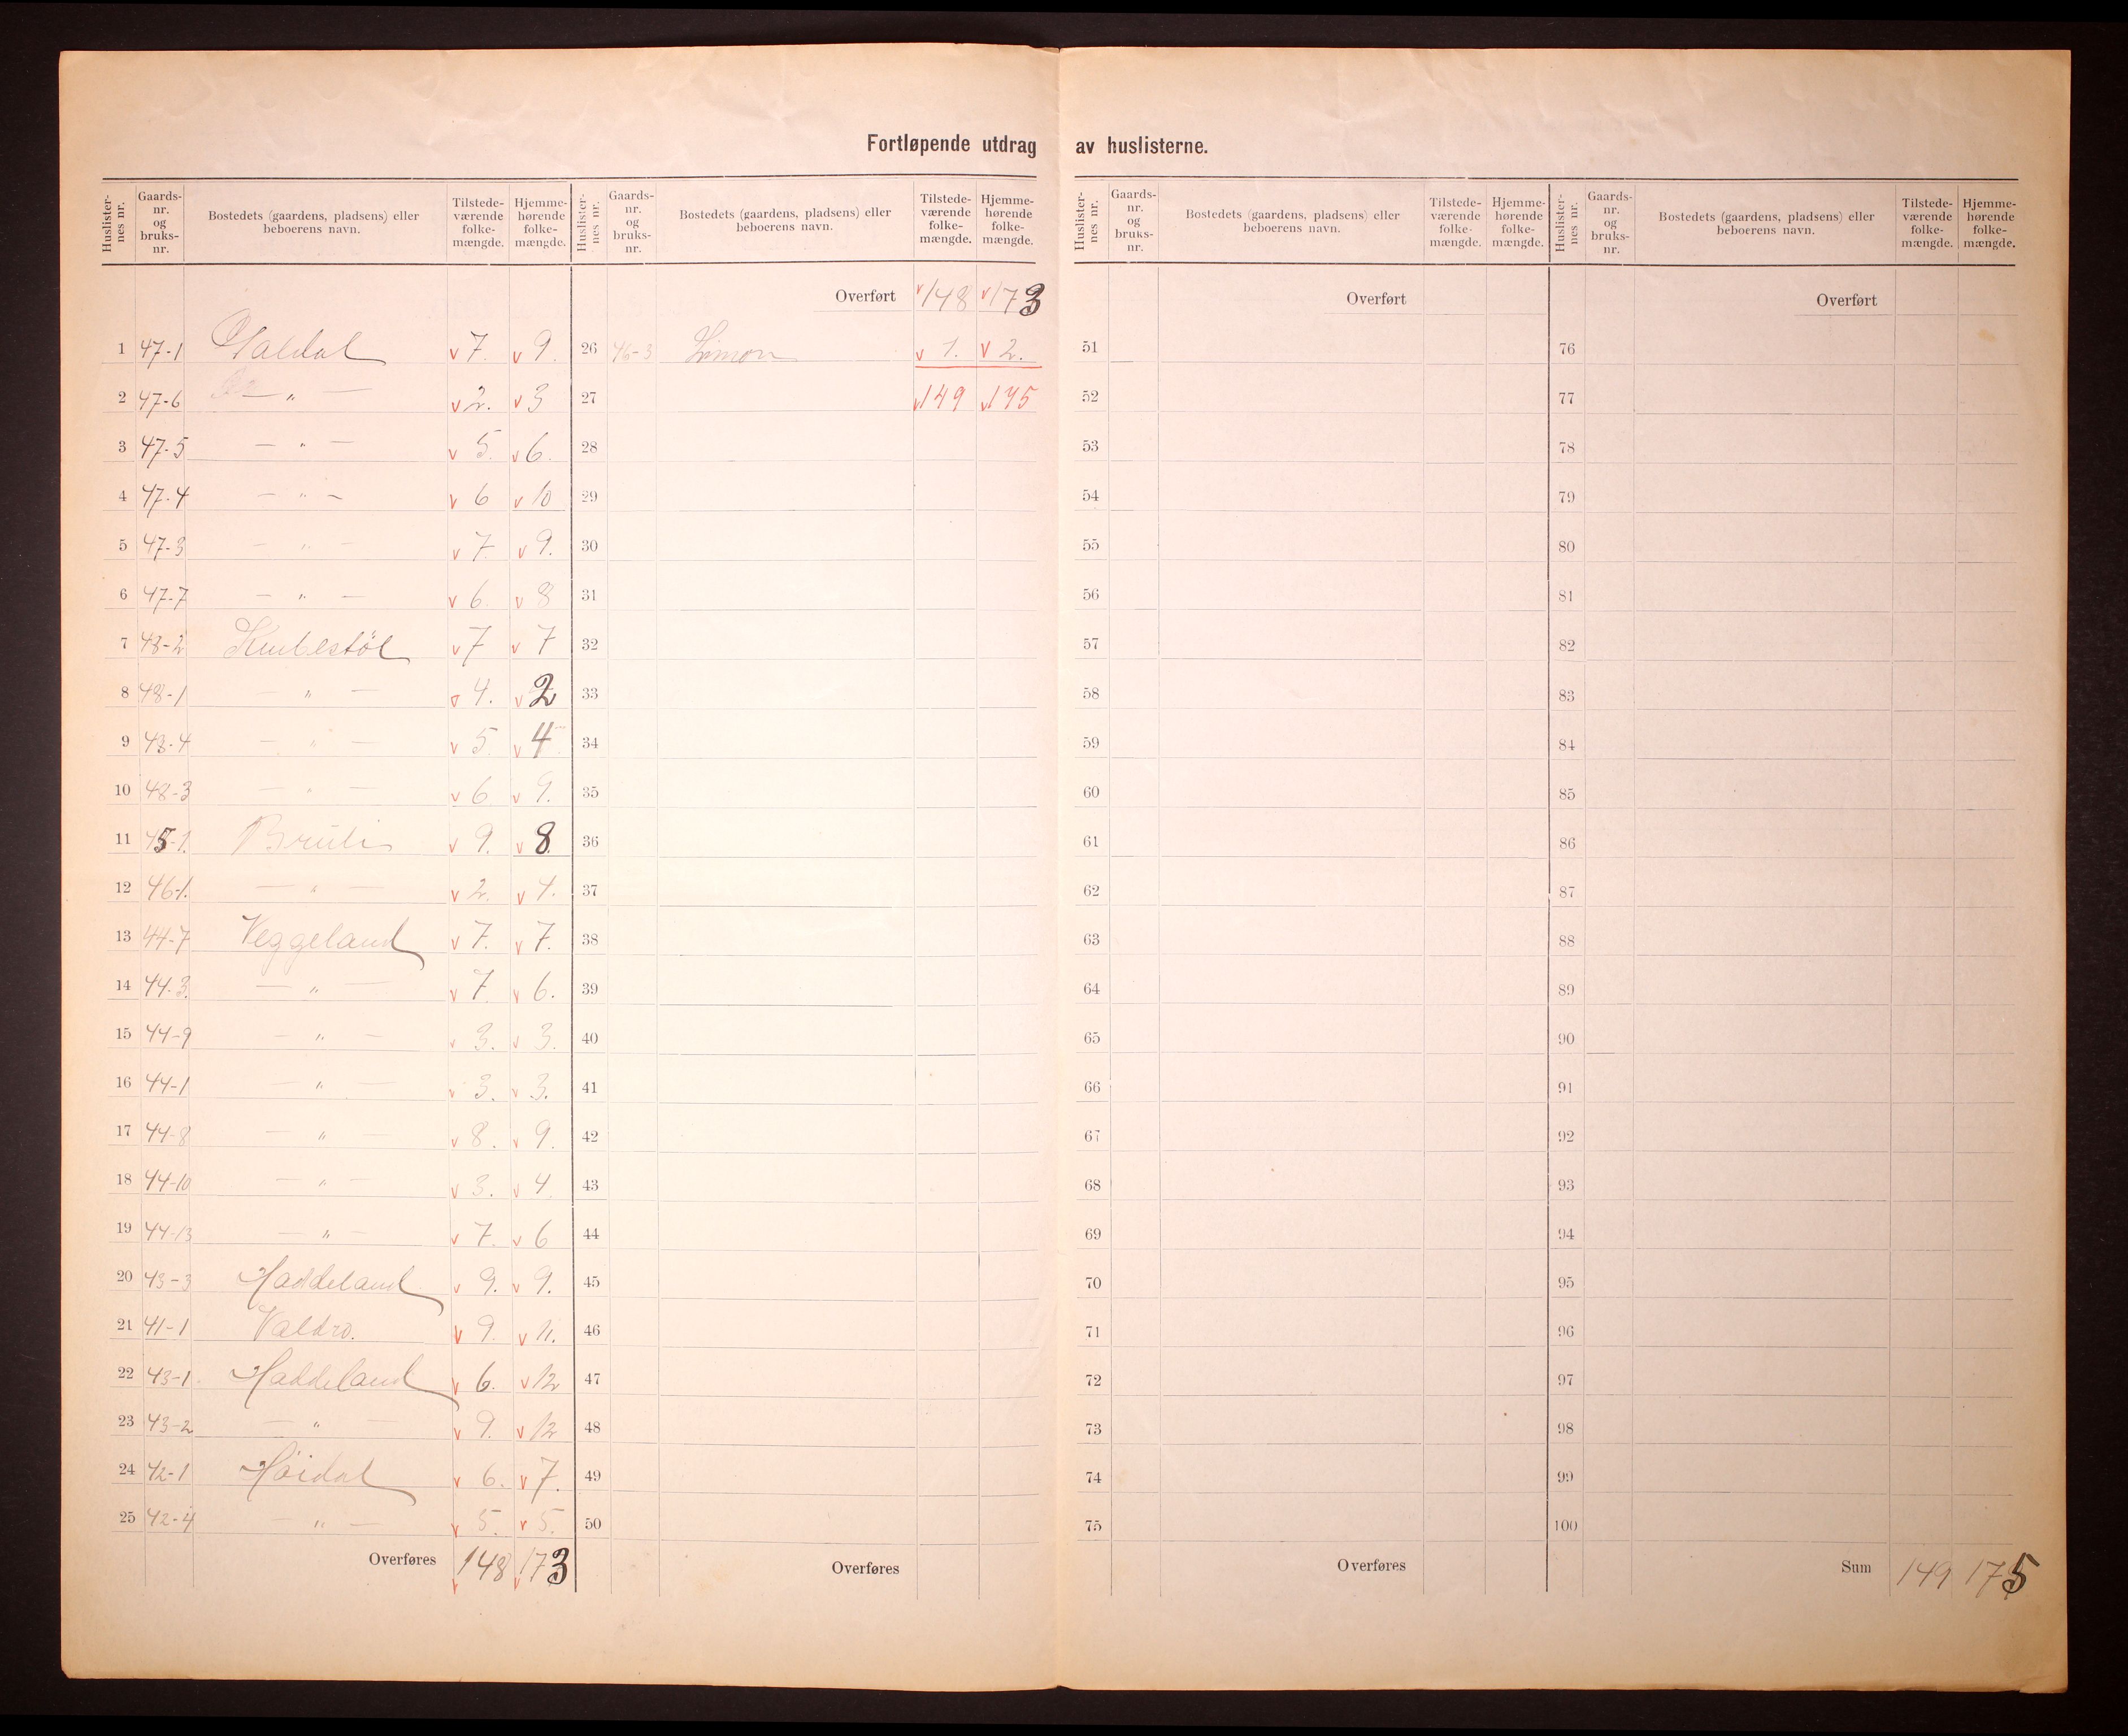 Fortløpende utdrag av huslisterne.
Huslisternes nr. Gaardsnr. og bruksnr. Bostedets (gaardens, pladsens) eller beboerens navn. Tilstedeværende folkemængde. Hjemmehørende folkemængde.
1 47-1 v 7. v 9.
2 47-6 " — v 2. v 3
3 47-5 — " — v 5. v 6.
4 47-4 — " — v 6 v 10
5 47-3 — " — v 7 v 9.
6 47-7 — " — v 6. v 8
7 48-2 v 7 v 7
8 48-1 — " — v 4. v 2
9 48-4 — " — v 5. v 4
10 48-3 — " — v 6 v 9.
11 45-1. Bruli v 9. v 8.
12 46-1. — " — v 2. v 4.
13 44-7 Veggeland v 7. v 7.
14 44-3. — " — v 7. v 6.
15 44-9 — " — v 3. v 3.
16 44-1 — " — v 3. v 3.
17 44-8 — " — v 8. v 9.
18 44-10 — " — v 3. v 4
19 44-13 — " — v 7. v 6
20 43-3 Haddeland v 9. v 9.
21 41-1 Valdro. v 9. v 11.
22 43-1. Haddeland v 6. v 12
23 43-2 — " — v 9. v 12
24 42-1 Höidal v 6. v 7.
25 42-4 — " — v 5. v 5.
Overføres 148 173
Huslisternes nr. Gaardsnr. og bruksnr. Bostedets (gaardens, pladsens) eller beboerens navn. Tilstedeværende folkemængde. Hjemmehørende folkemængde.
Overført v 148 v 173
26 46-3 v 1. v 2.
27 v 149 v 175
28
29
30
31
32
33
34
35
36
37
38
39
40
41
42
43
44
45
46
47
48
49
50
Overføres
Huslisternes nr. Gaardsnr. og bruksnr. Bostedets (gaardens, pladsens) eller beboerens navn. Tilstedeværende folkemængde. Hjemmehørende folkemængde.
Overført
51
52
53
54
55
56
57
58
59
60
61
62
63
64
65
66
67
68
69
70
71
72
73
74
75
Overføres
Huslisternes nr. Gaardsnr. og bruksnr. Bostedets (gaardens, pladsens) eller beboerens navn. Tilstedeværende folkemængde. Hjemmehørende folkemængde.
Overført
76
77
78
79
80
81
82
83
84
85
86
87
88
89
90
91
92
93
94
95
96
97
98
99
100
Sum 149 175